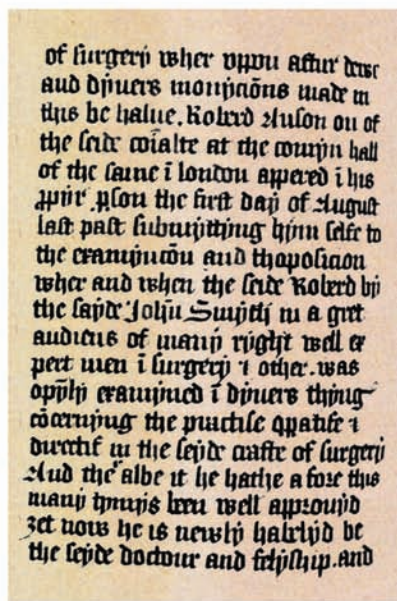 of surgery wher vppon affur dewe
and dyuers monyciōns made in
this be halue. Roberd Anson on of
the seide cōialte at the comyn hall
of the same ī london appered ī his
ꝓpir ꝑson the first day of August
last past submytting hym selfe to
the examynciōn and thoposicion
wher and when the seide Roberd by
the sayde John Smyth in a gret
audiens of many ryght well ex
pert men ī surgery ⁊ other. was
opynly examyned ī dyuers thing
cōcernyng the practise opatife ⁊
directif in the seyde crafte of surgery
And the albe it he hathe a fore this
many tymys been well approuyd
ȝet now he is newly habelyd be
the seyde doctour and felyship. and